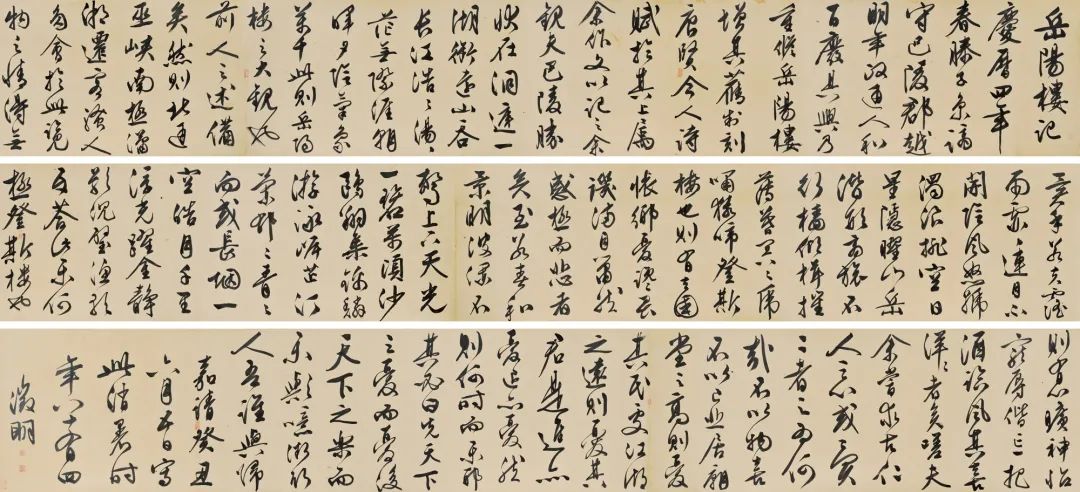 岳陽樓記
慶曆四年
春滕子京謫
守巴陵郡越
明年政通人和
百廢具興乃
重修岳陽樓
增其舊制刻
唐賢今人詩
賦於其上屬
余作文以記之余
觀夫巴陵勝
狀在洞庭一
湖銜遠山吞
長江浩浩湯湯
茫無際涯朝
暉夕陰氣象
萬千此則岳陽
樓之大觀也
前人之述備
矣然則北通
巫峽南極瀟
湘遷客騷人
多會於此覽
物之情得無
異乎若夫霪
雨霏霏連月不
開陰風怒號
濁浪排空日
星隱曜山岳
潛形商旅不
行檣傾楫摧
薄暮冥冥虎
嘯猿啼登斯
樓也則有去國
懷鄉憂讒畏
譏滿目蕭然
感極而悲者
矣至若春和
景明波瀾不
驚上下天光
一碧萬頃沙
鷗翔集錦鱗
游泳岸芷汀
蘭郁郁青青
而或長烟一
空皓月千里
浮光躍金靜
影沉璧漁歌
互答此樂何
極登斯樓也
則有心曠神怡
寵辱偕忘把
酒臨風其喜
洋洋者矣嗟夫
余嘗求古仁
人之心或異
二者之為何
哉不以物喜
不以己悲居廟
堂之高則憂
其民處江湖
之遠則憂其
君是進亦
憂退亦憂然
則何時而樂耶
其必曰先天下
之憂而憂後
天下之樂而
樂歟噫微斯
人吾誰與歸
嘉靖癸丑
六月十日寫
此清暑時
年八十有四
徵明